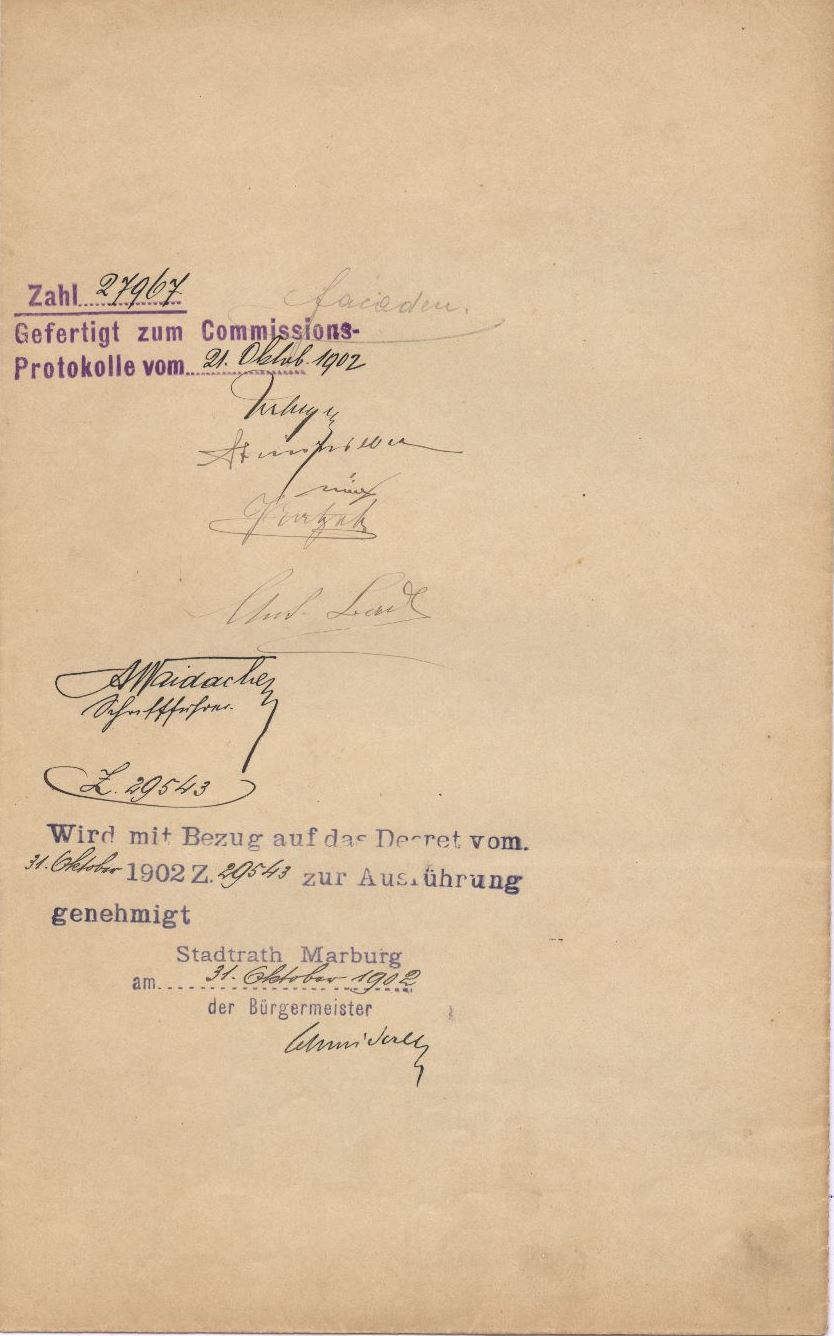 Zahl 27967
facaden.
Gefertigt zum Commissions-
Protokolle vom 21. Oktob. 1902
AWaidacher
Schriftführer.
Z. 29543
Wird mit Bezug auf das Decret vom.
31. Oktober 1902 Z. 29543 zur Ausführung
genehmigt
Stadtrath Marburg
am 31. Oktober 1902
der Bürgermeister